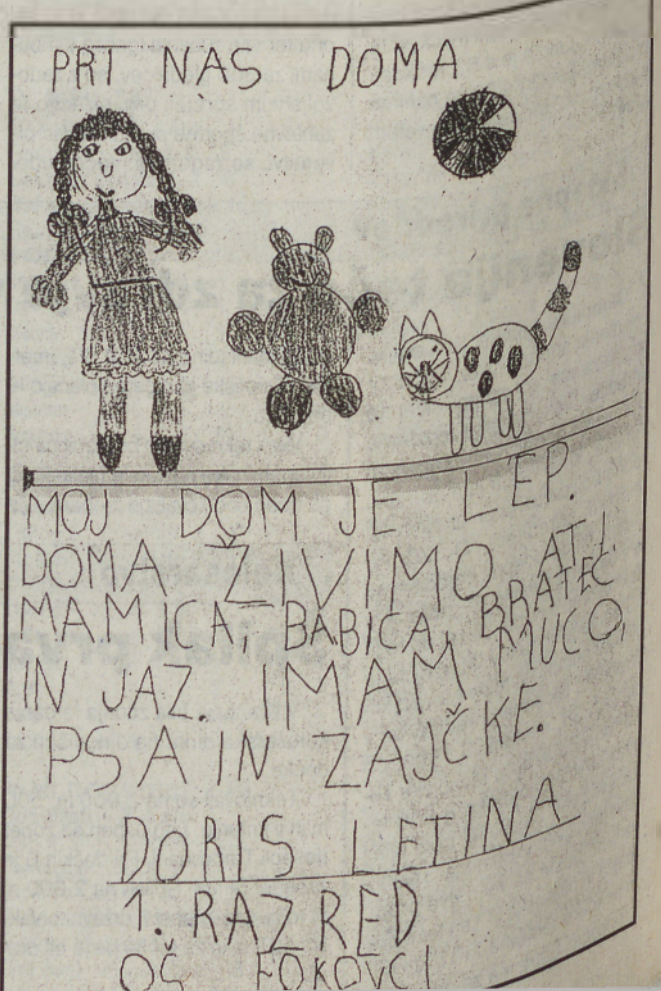 PRI NAS DOMA
MOJ DOM JE LEP.
DOMA ŽIVIMO ATI,
MAMICA, BABICA, BRATEC
IN JAZ. IMAM MUCO,
PSA IN ZAJČKE.
DORIS LETINA
1. RAZRED
OŠ FOKOVCI